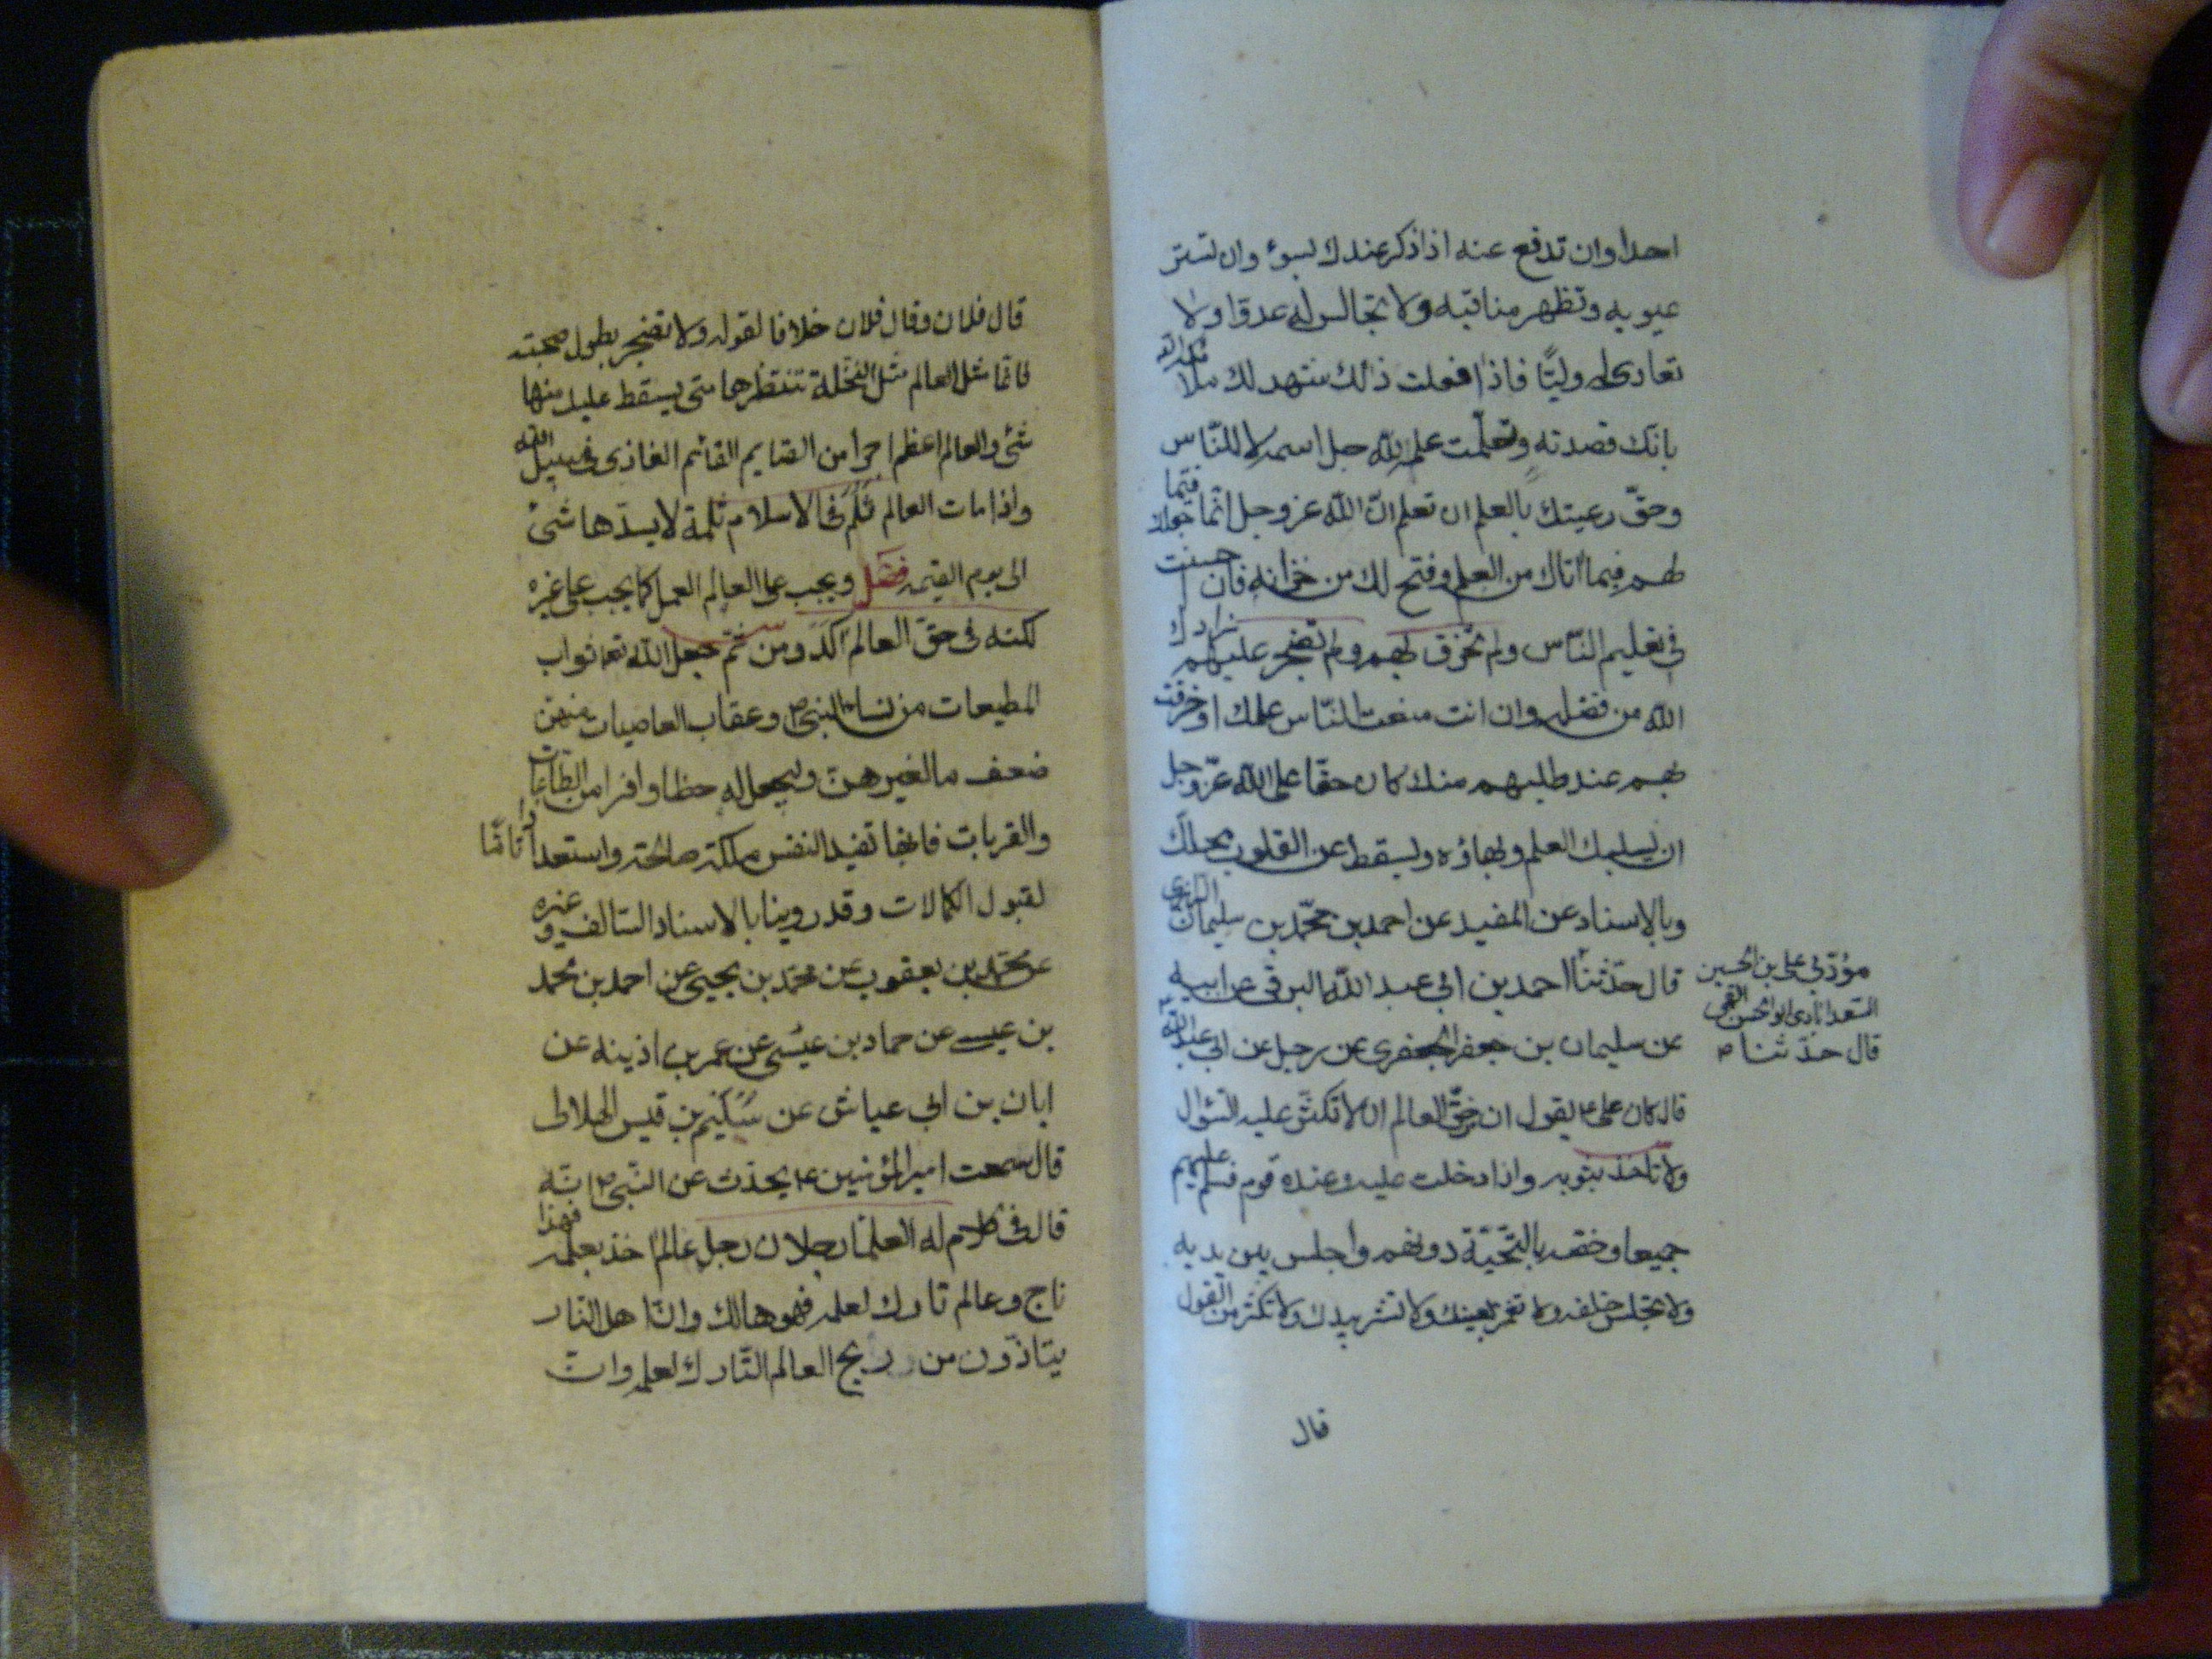 احدا وان تدفع عنه اذا ذكر عندك بسوء وان تستر
عيوبه وتظهر مناقبه ولا تجالس له عدوّا ولا
تعادى له وليًّا فاذا فعلت ذلك شهد لك ملائكة الله
بانّك قصدته وتعلّمت علمه لله جل اسمه لا للنّاس
وحقّ رعيتك بالعلم ان تعلم انّ الله عز وجل انّما جعلك قيّما
لهم فيما اتاك من العلم وفتح لك من خزانه فان احسنت
فى تعليم النّاس ولم تخرق بهم ولم تضجر عليهم زادك
الله من فضله وان انت منعت النّاس علمك او خرقت
بهم عند طلبهم منك كان حقّا على الله عزّ وجل
ان يسلبك العلم وبهاؤه ويسقط عن القلوب محلّك
وبالاسناد عن المفيد عن احمد بن محمّد بن سليمان الزرارى
قال حدّثنا احمد بن ابى عبد الله البرقى عن ابيه
مؤدّبى على بن الحسين
السعدابادى ابو الحسن القمى
قال حدّثنا
عن سليمان بن جعفر الجعفرى عن رجل عن ابى عبد الله ع
قال كان على ع يقول ان من حقّ العالم ان لا تكثر عليه السّؤال
ولا تاخذ بثوبه واذا دخلت عليه وعنده قوم فسلم عليهم
جميعا وخصّه بالتّحيّة دونهم واجلس بين يديه
ولا تجلس خلفه ولا تغمز بعينك ولا تشر بيدك ولا تكثر من القول
قال
قال فلان وقال فلان خلافا لقوله ولا تضجر بطول صحبته
فانّما مثل العالم مثل النّخلة تنتظرها متى يسقط عليك منها
شئ والعالم اعظم اجرا من الصّايم القائم الغازى فى سبيل الله
واذا مات العالم ثلم فى الاسلام ثلمة لا يسدّها شئ
الى يوم القيمه فصل ويجب على العالم العمل كما يجب على غيره
لكنه فى حقّ العالم اكد ومن ثمّ جعل الله تعا ثواب
المطيعات من نساء النبى ص وعقاب العاصيات منهنّ
ضعف ما لغيرهنّ وليجعل له حظا وافرا من الطّاعات
والقربات فانّها تفيد النفس ملكة صالحة واستعدادا تامّا
لقبول الكمالات وقد روينا بالاسناد السّالف وغيره
عن محمّد بن يعقوب عن محمّد بن يحيى عن احمد بن محمد
بن عيسى عن حماد بن عيسى عن عمر بن اذينه عن
ابان بن ابى عياش عن سُلَيم بن قيس الهلالى
قال سمعت امير المؤمنين ع يحدّث عن النّبى ص انّه
قال فى كلام له العلماء رجلان رجل عالم اخذ بعلمه فهذا
ناج وعالم تارك لعلمه فهو هالك وانّ اهل النّار
يتاذّون من ريح العالم التّارك لعلمه وانّ